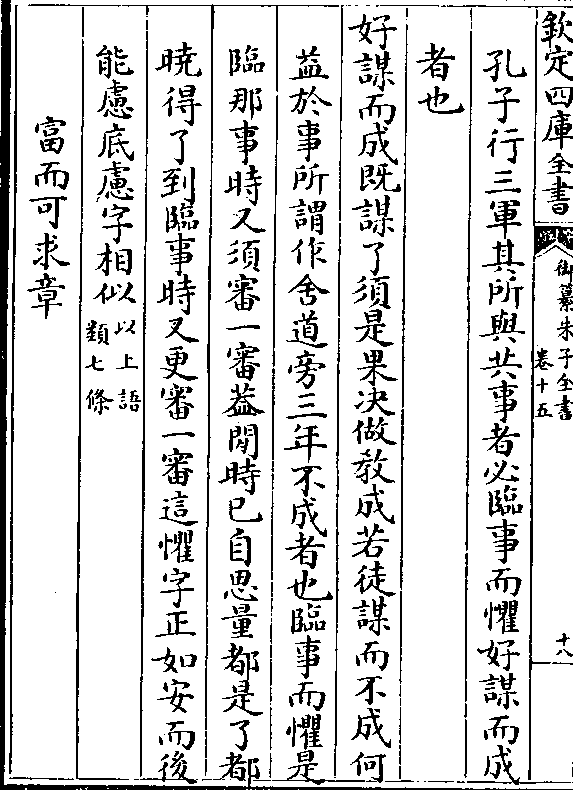 欽定四庫全書
御纂朱子全書
卷十五
十八
孔子行三軍其所與共事者必臨事而懼好謀而成
者也
好謀而成既謀了須是果决做教成若徒謀而不成何
益於事所謂作舍道旁三年不成者也臨事而懼是
臨那事時又須審一審蓋閒時已自思量都是了都
曉得了到臨事時又更審一審這懼字正如安而後
能慮底慮字相似以上語
類七條
富而可求章